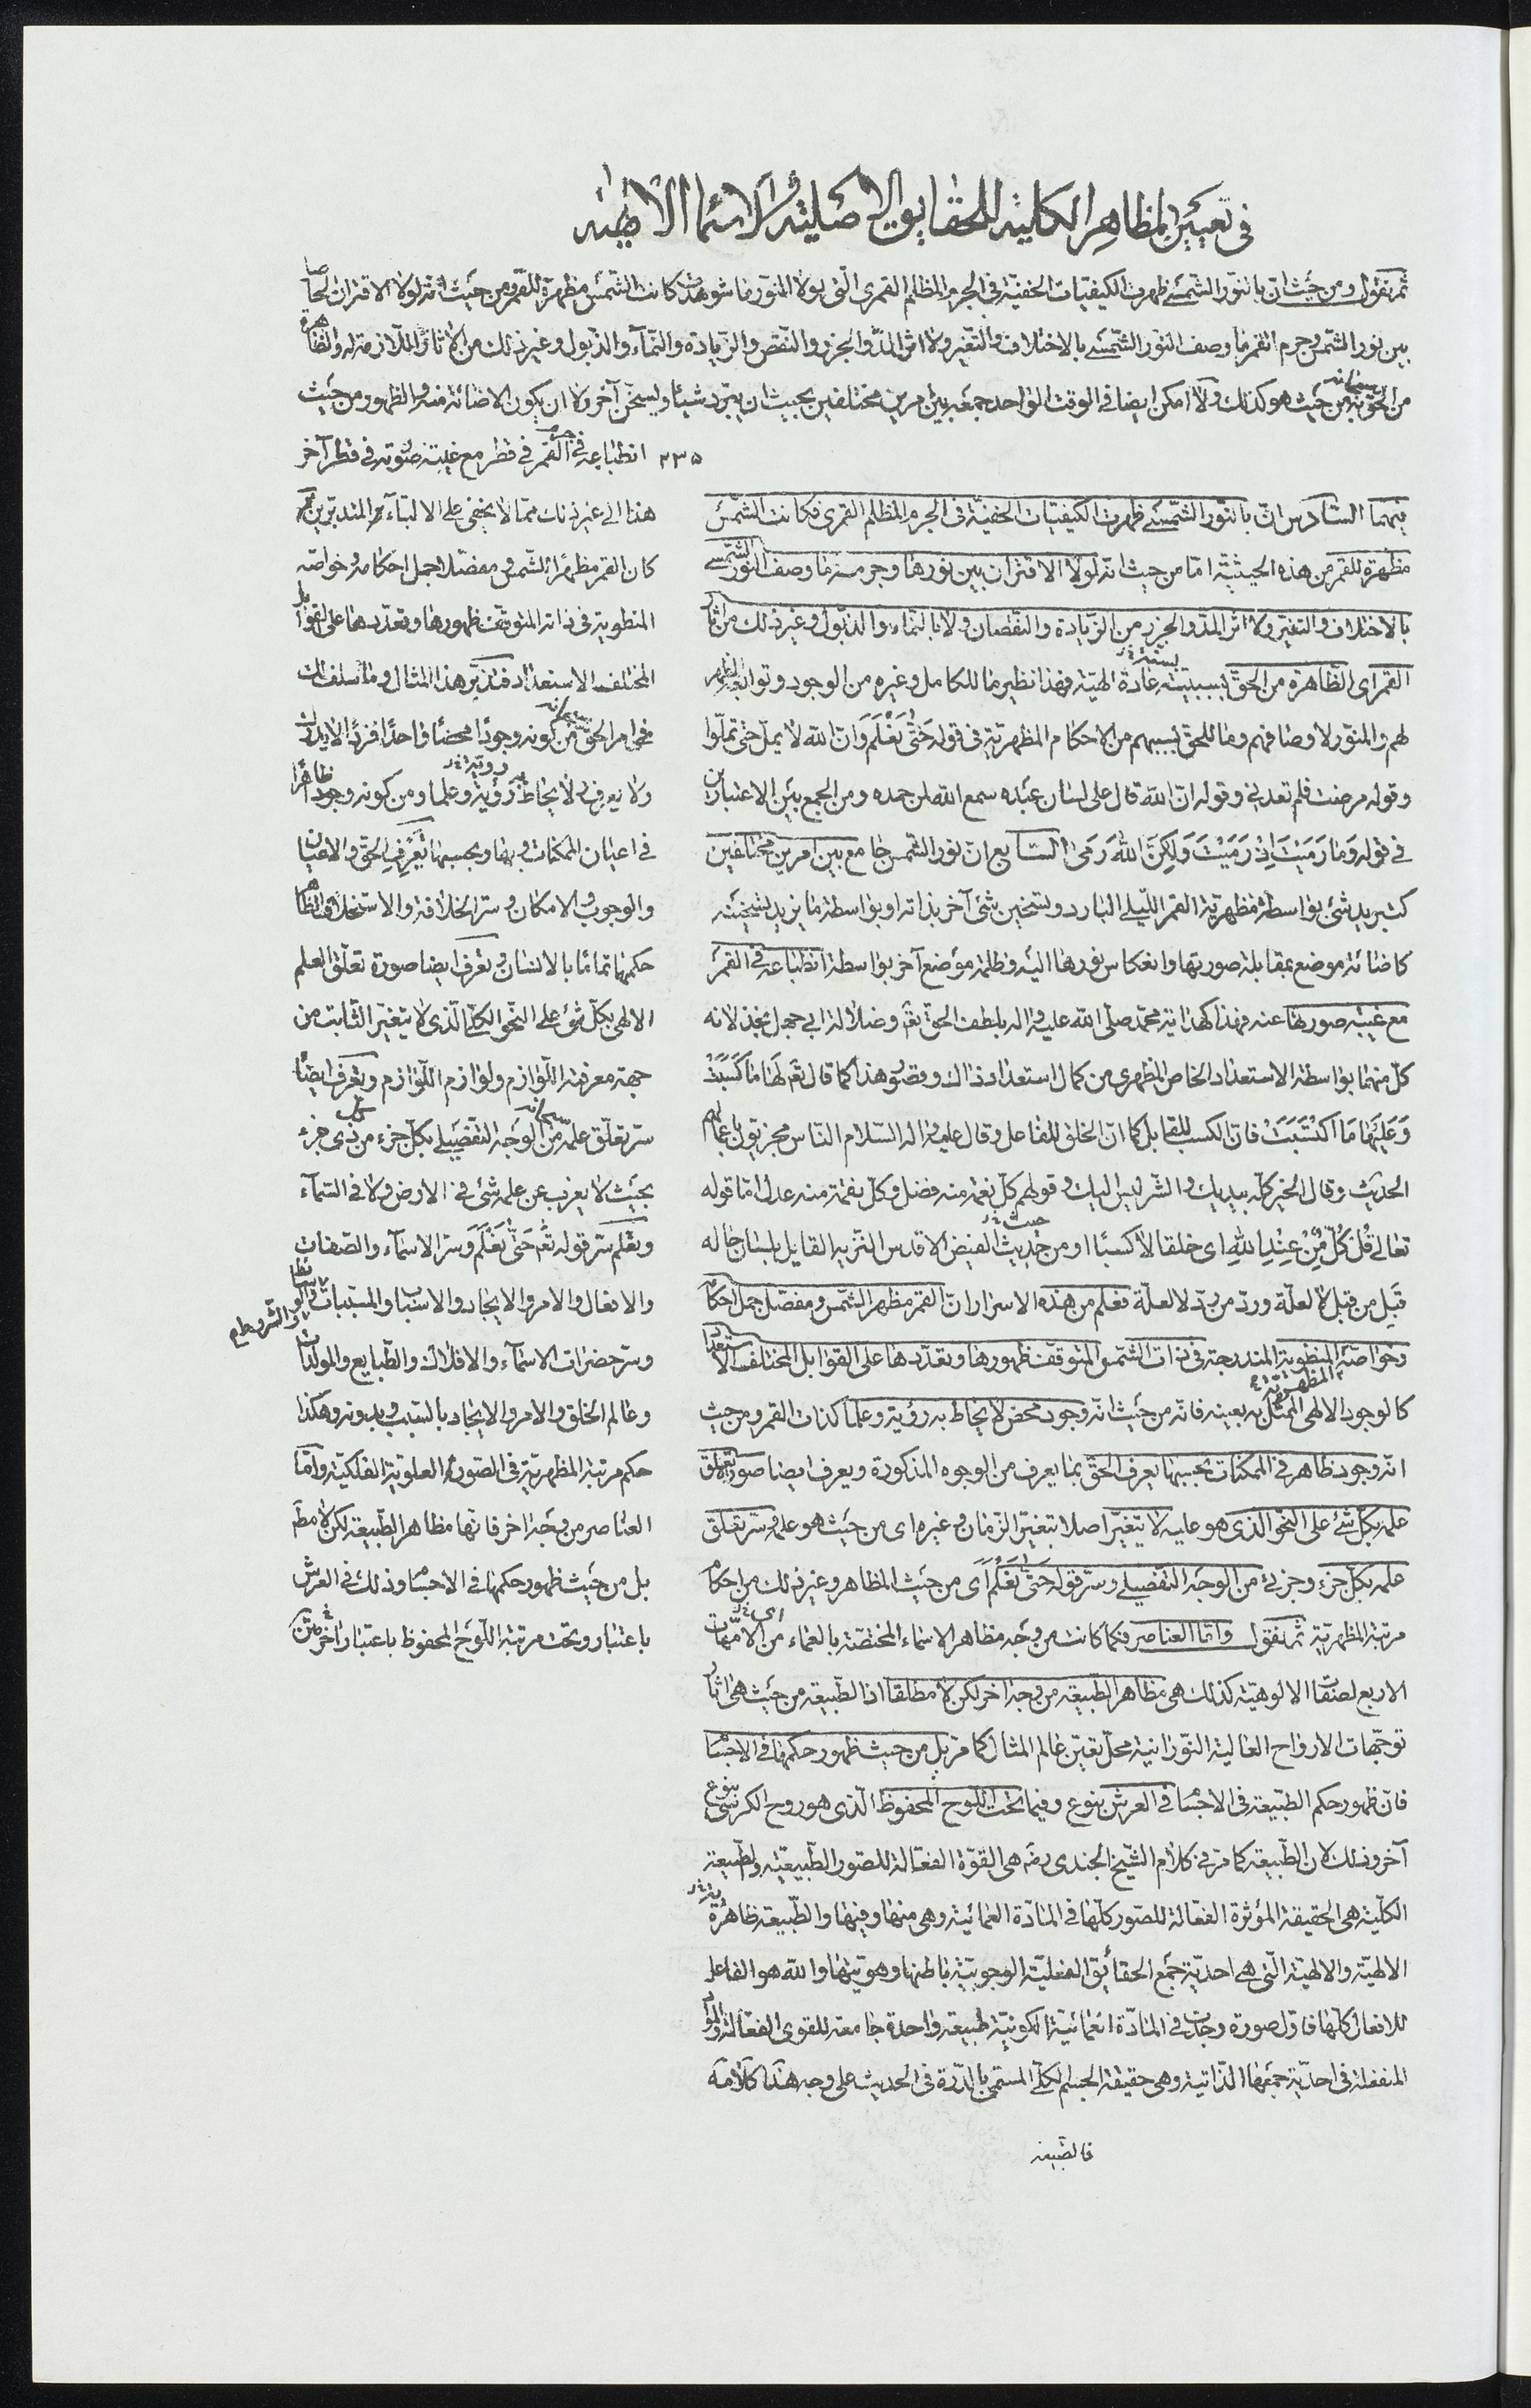 في تعيين المظاهر الكلية للحقايق الاصلية والاسماء الالهية
ثم نقول ومن حيث ان بالنور الشمسي ظهرت الكيفيات الخفية في الجرم المظلم القمري التي لولا المنور ما شوهدت كانت الشمس مظهرة للقمر ومن حيث انه لولا الاقتران الحاصل
بين نور الشمس وجرم القمر ما وصف النور الشمسي بالاختلاف والتغير ولا اثر المد والجزر والنقص والزيادة والنماء والذبول وغير ذلك من الآثار اللازمة له والظاهرة
من الحق به سبحانه من حيث هو كذلك ولا امكن ايضا في الوقت الواحد جمعه بين امرين مختلفين بحيث ان يبرد شيئا ويسخن آخر ولا ان يكون الاضائة منه والظهور ومن حيث
انطباعه في جرم القمر في قطر مع غيبة ضوئه في قطر آخر
٢٣٥
هذا الى غير ذلك مما لا يخفى على الالباء المتدبرين ثم
كان القمر مظهرا للشمس ومفصلا لجمل احكامه وخواصه
المنطوية في ذاته المتوقف ظهورها وتعددها على القوابل
المختلفة الاستعداد فتدبر هذا المثال وما اسلف لك
في امر الحق سبحانه من كونه وجودا محضا واحدا فردا لا يدرك
ولا يعرف ولا يحاط به رؤية وعلما ومن كونه وجودا ظاهرا
في اعيان الممكنات وبها وبحسبها تعرف الحق والاعيان
والوجوب والامكان وسر الخلافة والاستخلاف الظاهر
حكمهما تماما بالانسان وتعرف ايضا صورة تعلق العلم
الالهي بكل شئ على النحو الكلي الذي لا يتغير الثابت من
جهة معرفة اللوازم ولوازم اللوازم وتعرف ايضا
سر تعلق علمه سبحانه من الوجه التفصيلي بكل جزء من ذي جزء
بحيث لا يعزب عن علمه شئ في الارض ولا في السماء
وتعلم سر قوله تعم حتى نعلم وسر الاسماء والصفات
والافعال والامر والايجاد والاسباب والمسببات والوسائط والشروط
وسر حضرات الاسماء والافلاك والطبايع والمولدات
وعالم الخلق والامر والايجاد بالسبب وبدونه وهكذا
حكم مرتبة المظهرية في الصورة العلوية الفلكية واما
العناصر من وجه اخر فانها مظاهر الطبيعة لكن لا مطلقا
بل من حيث ظهور حكمها في الاجسام وذلك في العرش
باعتبار وتحت مرتبة اللوح المحفوظ باعتبار اخر
متن
فيهما السادس ان بالنور الشمسي ظهرت الكيفيات الخفية في الجرم المظلم القمري فكانت الشمس
مظهرة للقمر من هذه الحيثية اما من حيث انه لولا الاقتران بين نورها وجرمه ما وصف النور الشمسي
بالاختلاف والتغير ولا اثر المد والجزر من الزيادة والنقصان ولا بالنماء والذبول وغير ذلك من آثار
القمر اى الظاهرة من الحق بسببيته عادة الهية فهذا نظير ما للكامل وغيره من الوجود وتوابعه المظهر
لهم والمنور لاوصافهم وما للحق بسببهم من الاحكام المظهرية في قوله حتى نعلم وان الله لا يمل حتى تملوا
وقوله مرضت فلم تعدني وقوله ان الله قال على لسان عبده سمع الله لمن حمده ومن الجمع بين الاعتبارين
في قوله وما رميت اذ رميت ولكن الله رمى السابع ان نور الشمس جامع بين امرين مختلفين
كتبريد شئ بواسطة مظهرية القمر الليلي البارد وتسخين شئ آخر بذاته او بواسطة ما يزيد تسخينه
كاضائة موضع بمقابلة صورتها وانعكاس نورها اليه وظلمة موضع آخر بواسطة انطباعه في القمر
مع غيبة صورتها عنه فهذا كهداية محمد صلى الله عليه واله بلطف الحق تعم وضلالة ابي جهل بخذلانه
كل منهما بواسطة الاستعداد الخاص المظهري من كمال استعداد ذاك وقصور هذا كما قال تعم لها ما كسبت
وعليها ما اكتسبت فان الكسب للقابل كما ان الخلق للفاعل وقال عليه واله السلام الناس مجزيون باعمالهم
الحديث وقال الخير كله بيديك والشر ليس اليك وقولهم كل نعمة منه فضل وكل نقمة منه عدل اما قوله
تعالى قل كل من عند الله اى خلقا لا كسبا او من حيث الفيض الاقدس النزيه القايل بلسان حاله
قبل من قبل لا لعلة ورد من رد لا لعلة فعلم من هذه الاسرار ان القمر مظهر الشمس ومفصل جمل احكام
وخواصه المنطوية المندرجة في ذات الشمس المتوقف ظهورها وتعددها على القوابل المختلفة الاستعداد
كالوجود الالهي الممثل به بعينه فانه من حيث انه وجود محض لا يحاط به رؤية وعلما كذات القمر ومن حيث
انه وجود ظاهر في الممكنات بحسبها يعرف الحق بما يعرف من الوجوه المذكورة ويعرف ايضا صورة تعلق
علمه بكل شئ على النحو الذي هو عليه لا يتغير اصلا بتغير الزمان وغيره اى من حيث هو علم وسر تعلق
علمه بكل جزء وجزئي من الوجه التفصيلي وسر قوله حتى نعلم اى من حيث المظاهر وغير ذلك من احكام
مرتبة المظهرية ثم نقول واما العناصر فكما كانت من وجه مظاهر الاسماء المختصة بالعماء من الامهات
الاربع لصفات الالوهية كذلك هي مظاهر الطبيعة من وجه اخر لكن لا مطلقا اذ الطبيعة من حيث هي اثار
توجهات الارواح العالية النورانية محل تعين عالم المثال كما مر بل من حيث ظهور حكمها في الاجسام
فان ظهور حكم الطبيعة في الاجسام في العرش بنوع وفيما تحت اللوح المحفوظ الذي هو روح الكرسي بنوع
آخر وذلك لان الطبيعة كما مر في كلام الشيخ الجندي رضه هي القوة الفعالة للصور الطبيعية والطبيعة
الكلية هي الحقيقة المؤثرة الفعالة للصور كلها في المادة العمائية وهي منها وفيها والطبيعة ظاهرة
الالهية والالهية التي هي احدية جمع الحقائق الفعلية الوجوبية باطنها وهويتها والله هو الفاعل
للافعال كلها فاول صورة وجدت في المادة العمائية الكونية طبيعة واحدة جامعة للقوى الفعالة والمواد
المنفعلة في احدية جمعها الذاتية وهي حقيقة الجسم الكلي المسمى بالدرة في الحديث على وجه هذا كلامه
فالطبيعة